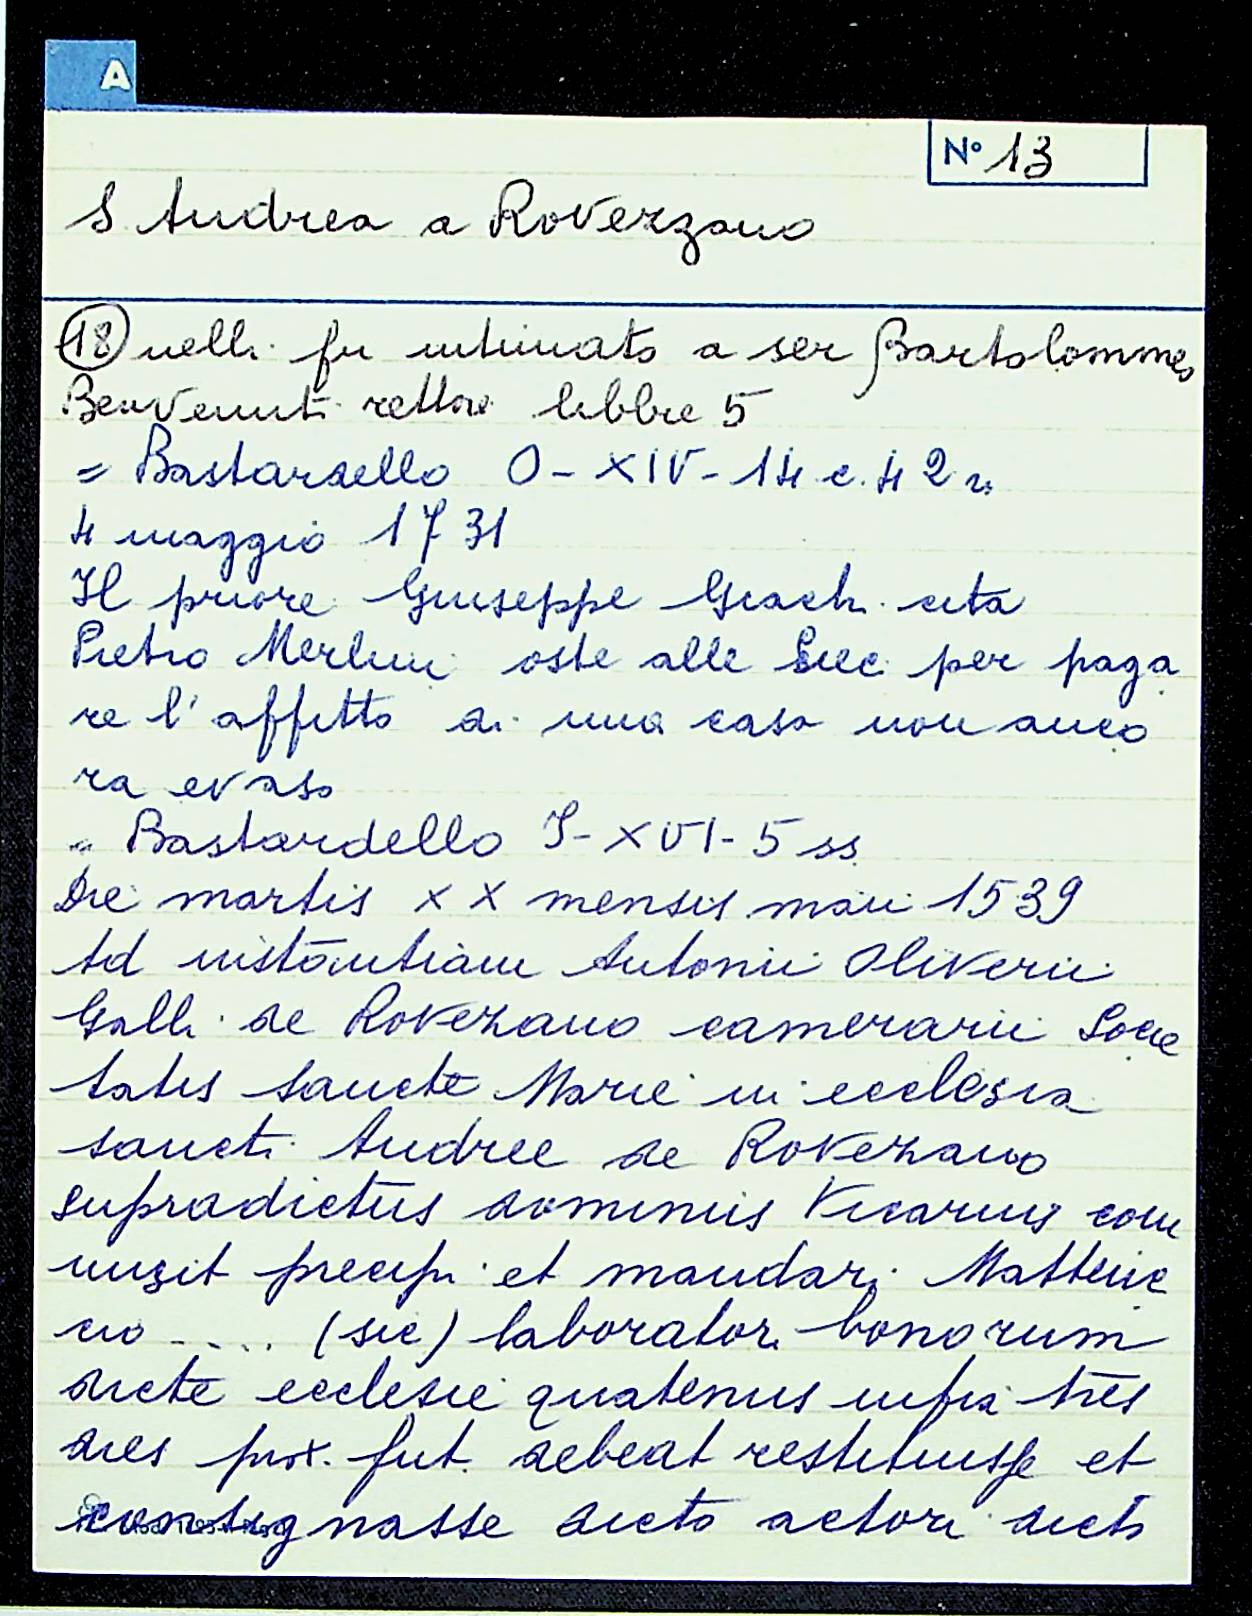 A
N° 13
S Andrea a Rovezzano
(18) nelli fu intimato a ser Bartolommeo
Benvenuti rettore libbre 5
= Bastardello O-XIV-14 c. 42 r.
4 maggio 1731
Il priore Giuseppe Giachi cita
Pietro Merlini oste alle Siec. per paga
re l'affitto di una casa non anco
ra evaso
= Bastardello I-XVI-5 ss
Die martis XX mensis maii 1539
Ad instantiam Antonii Oliverii
Galli de Rovezano camerarii Socie
tatis Sancte Marie in ecclesia
sancti Andree de Rovezano
supradictus dominus Vicarius com
misit precipi et mandari Matteuc
cio .... (sic) laboratori bonorum
dicte ecclesie quatenus infra tres
dies prox. fut. debeat restituisse et
consignasse dicto actori dicto